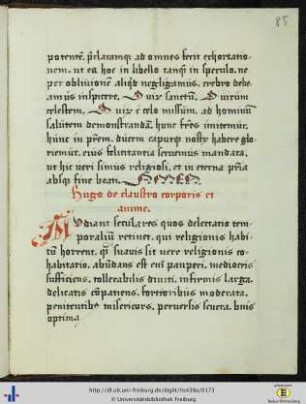 85
potentē. p̄claramq; ad omnes fecit exhortatio-
nem. ut ea hoc in libello tanq̄ in speculo. ne
per obliuionem aliq̄d negligamus. crebro debe-
amus inspicere. O uix sanctū. O uirum
celestem. O uix e celo missum. ad hominū
salutem demonstrandā. hunc frēs imitemur.
hunc in p̄rem. ducem capiusq; nostrȳ habere glo-
riemur. eius felicitantia seruemus mandata.
ut hic ueri simus religiosi. et in eterna p̄ria
absq; fine beati. AMEN
Hugo de claustro corporis et
anime.
AUdiant seculares quos delectatio tem-
poraliū retinet. qui religionis habi-
tū horrent. q̄ suauis sit uere religionis co-
habitatio. abūdans est eni pauperi. mediocris
sufficiens. tollerabilis diuiti. infirmis larga.
delicatis cōpatiens. fortioribus moderata.
penitentibȝ misericors. peruersis seuera. bonis
optima
http://dl.ub.uni-freiburg.de/diglit/hs439a/0173
© Universitätsbibliothek Freiburg